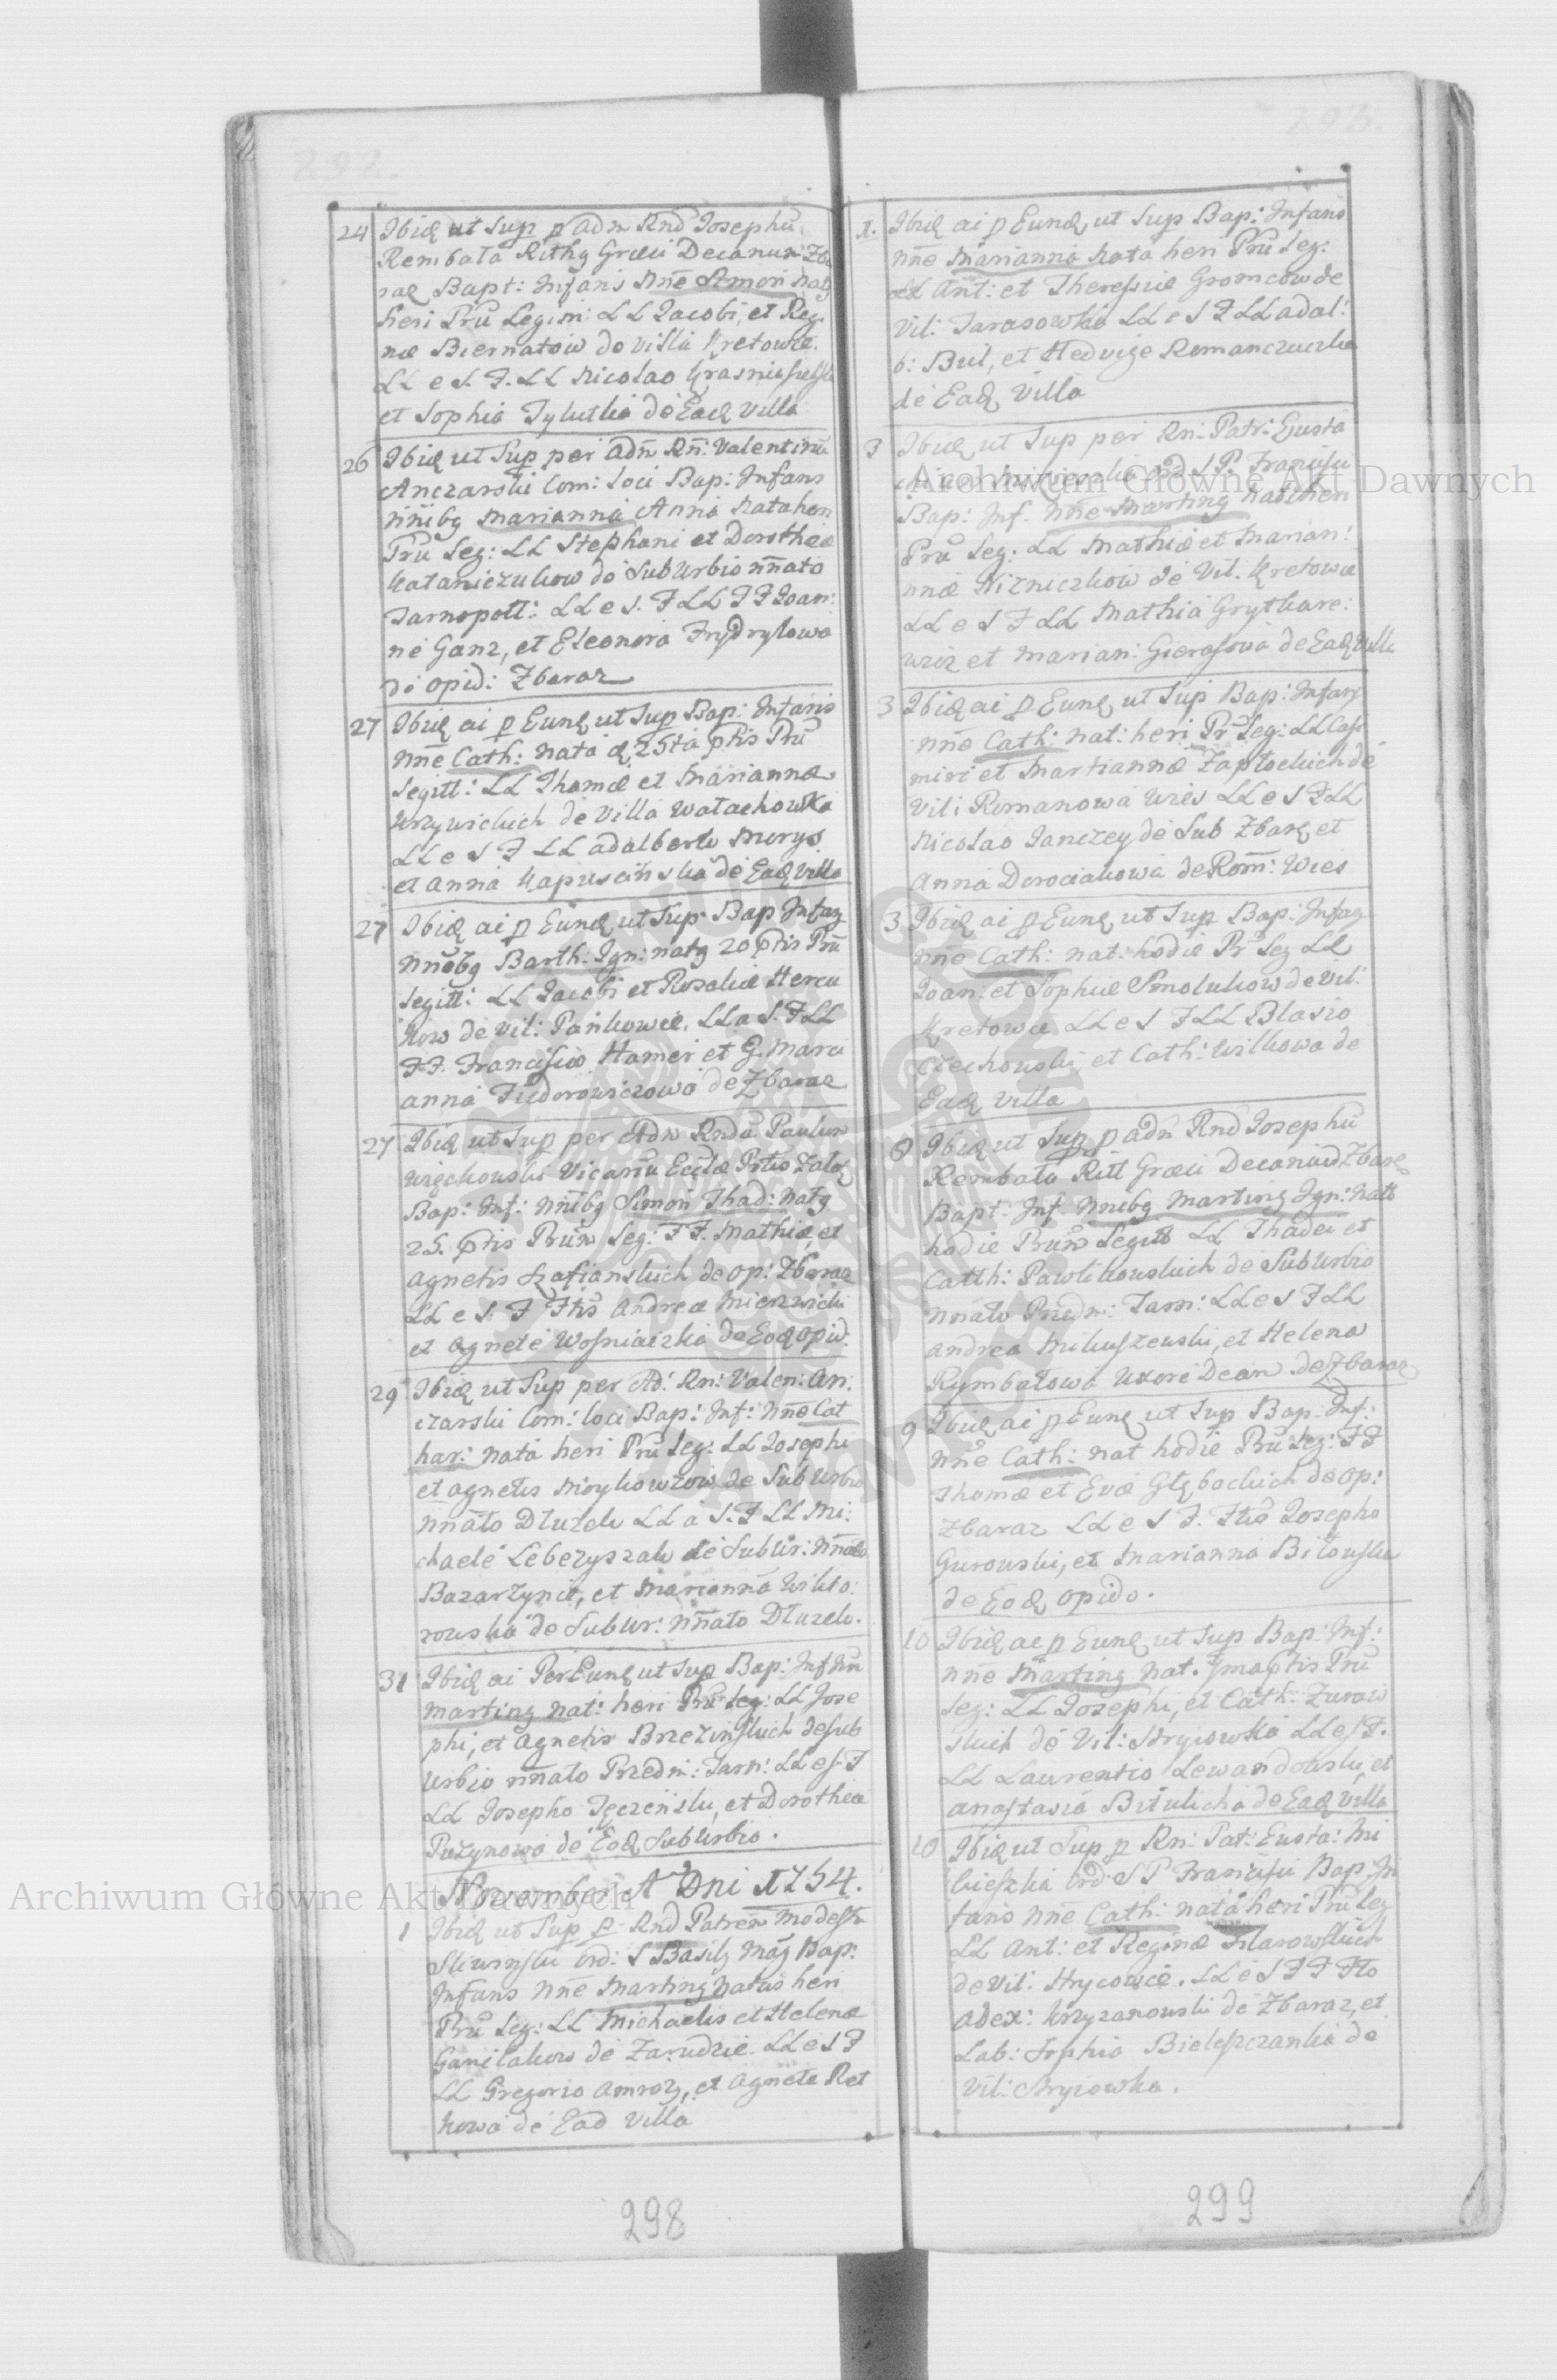 292.
24 Ibiḋ ut Sup p Adn Rnd Josephū
Rembała Rithg Græci Decanum Zba
raz Bapt: Infans Nn̄e Simon Natg
heri Prū Legim: LL Jacobi, et Reg
næ Biernatow de Villa Kretowce.
LL e S. F. LL Nicolao Krasnius
et Sophia Tylutka de Eaḋ Villa
26 Ibiḋ ut Sup per Adn̄ Rn̄: Valentinū
Anczarski Com: Loci Bap: Infans
Nn̄ibg Marianna Anna Nata heri
Prū Leg: LL Stephani et Dorotheæ
Kataniczukow de SubUrbio nn̄ato
Tarnopoll: LL e S. F LL FF Joan:
ne Ganz, et Eleonora Frydrytowa
de Opid: Zbaraz
27 Ibiḋ ai p Eunḋ ut Sup Bap: Infans
Nn̄e Cath: Nata ḋ 25ta ptis Prū
Legitt: LL Thomæ et Mariannæ
Krzywickich de Villa Wałachowka
LL e S F LL Adalberto Morys
et Anna Kapuscinska de Eaḋ Villa
27 Ibiḋ ai p Eunḋ ut Sup Bap Infag
Nnōbg Barth: Ign: natg 20 ptis Prū
Legitt: LL Jacobi et Rosaliæ Hercu
kow de Vil: Pankowce. LL a S. F LL
F.F. Francisco Hamer et G. Mari
anna Fiedorowiczowa de Zbaraz
27 Ibiḋ ut Sup per Adn Rndū Paulum
Więckowski Vicariū Eccłæ Prtis Załoz
Bap: Inf: Nn̄ibg Simon Thad: Natg
25. ptis Prūm Leg: F F. Mathiæ, et
Agnetis Szafianskich de Op: Zbaraz
LL e S. F Ftis Andrea Mierzwicki
et Agnete Wosniaczka de Eoḋ Opid.
29 Ibiḋ ut Sup per Ad: Rn: Valen: An:
czarski Com: loci Bap: Inf: Nn̄e Cat
har: Nata heri Prū Leg: LL Josephi
et Agnetis Moykowzow de SubUrbio
Nn̄ato Dłużek LL a S. F LL Mi:
chaele Lebezyszak de SubUr: Nn̄ato
Bazarzynce, et Marianna Wikto:
rowska de SubUr: Nn̄ato Dłuzek.
31 Ibiḋ ai Per Eunḋ ut Sup Bap: Inf Nn̄
Marting Nat: heri Prū Leg: LL Jose
phi, et Agnetis Brzezinskich de Sub
Urbio nn̄ato Przedm: Tarn: LL e S. F
LL Josepho Tęczenski, et Dorothea
Puzynowa de Eoḋ SubUrbio.
November A Dni 1754.
1 Ibiḋ ut Sup p Rnd Patrem Modest
Sliwinski Ord: S Basilz Mag Bap:
Infans Nn̄e Marting Natus heri
Prū Leg: LL Michaelis et Helenæ
Ganitakow de Zarudzie. LL e S F
LL Gregorio Amroz, et Agnete Ret
kowa de Ead Villa
298
293.
1. Ibiḋ ai p Eunḋ ut Sup Bap: Infans
Nn̄e Marianna Nata heri Prū Leg:
LL Ant: et Theresiæ Gromcow de
Vil: Tarasowka LL e S F LL Adal:
b: Buł, et Hedvige Romanczuczka
de Eaḋ Villa
3 Ibiḋ ut Sup per Rn: Patr: Eusta
Ord S P. Francisci
Bap: Inf. Nn̄e Marting Natg heri
Prū Leg: LL Mathiæ et Marian:
næ Nizniczkow de Vil. Kretowce
LL e S F LL Mathia Grytkare:
wicz et Marian: Gierasowa de Eaḋ Villa
3 Ibiḋ ai p Eunḋ ut Sup Bap: Infans
Nn̄e Cath: Nat: heri Pr Leg: LL Casi
miri et Mariannæ Zapłockich de
Vil: Romanowa Wies LL e S F LL
Nicolao Janczey de Sub Zbaraz et
Anna Dorociakowa de Rom̄: Wies
3 Ibiḋ ai p Eunḋ ut Sup Bap: Infag
Nn̄e Cath: nat: hodie Pr Leg LL
Joan: et Sophiæ Smolukow de Vil:
Kretowce LL e S F LL Blasio
Czechowski, et Cath: Wilkowa de
Eaḋ Villa
8 Ibiḋ ut Sup p Adn Rnd Josephū
Rembała Ritt Græci Decanū Zbaraz
Bapt: Inf. Nn̄ibg Marting Ign: Natg
hodie Prūm Legitt LL Thadei et
Catth: Pawlikowskich de SubUrbio
nnato Przedm: Tarn: LL e S F LL
Andrea Mikuszewski, et Helena
Rymbałowa Uxore Decan de Zbaraz
9 Ibiḋ ai p Eunḋ ut Sup Bap: Inf:
Nn̄e Cath: Nat hodie Prū Leg: F F
Thomæ et Evæ Głębockich de Op:
Zbaraz LL e S F. Ftis Josepho
Gurowski, et Marianna Bitowska
de Eoḋ Opido.
10 Ibiḋ ae p Eunḋ ut Sup Bap: Inf:
Nn̄e Marting Nat. 7ma ptis Prū
Leg: LL Josephi, et Cath: Zuraw
skich de Vil: Hrycowka LL e S F.
LL Laurentio Lewandowski, et
Anastasia Bitulicha de Eaḋ Villa
10 Ibiḋ ut Sup p Rn: Pat: Eusta: Mi
kieszka Ord: S P Francisci Bap: In
fans Nn̄e Cath: nata heri Prū Leg
LL Ant: et Reginæ Filarowskich
de Vil: Hrycowce. LL e S F F Fto
Alex: Krzyzanowski de Zbaraz, et
Lab: Sophia Bieleszczanka de
Vil: Hrycowka.
299
Archiwum Główne Akt Dawnych
Archiwum Główne Akt Dawnych